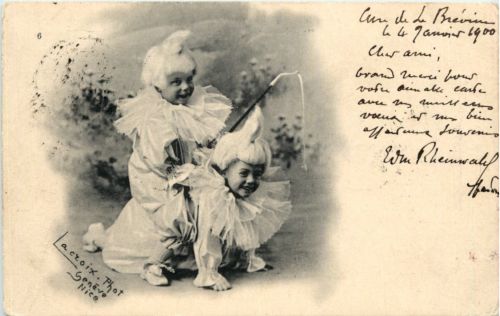 6
Cure de La Brévine
le 4 Janvier 1900
Cher ami,
Grand merci pour
votre aimable carte
avec nos meilleurs
vœux et nos bien
affectueux souvenirs
Wm Rheinwald
Lacroix. Phot
Genève
Nice